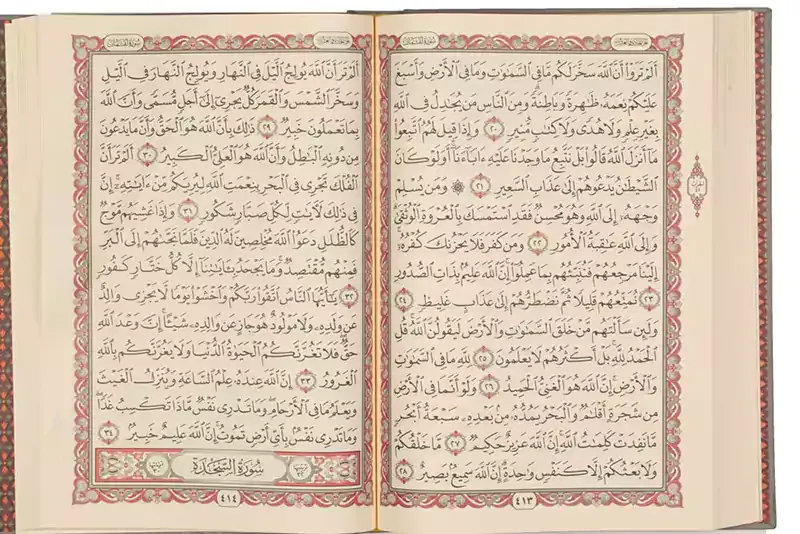 الجزء الحادي والعشرون
سورة لقمان
أَلَمْ تَرَوْا۟ أَنَّ ٱللَّهَ سَخَّرَ لَكُم مَّا فِى ٱلسَّمَٰوَٰتِ وَمَا فِى ٱلْأَرْضِ وَأَسْبَغَ
عَلَيْكُمْ نِعَمَهُۥ ظَٰهِرَةً وَبَاطِنَةً ۗ وَمِنَ ٱلنَّاسِ مَن يُجَٰدِلُ فِى ٱللَّهِ
بِغَيْرِ عِلْمٍ وَلَا هُدًى وَلَا كِتَٰبٍ مُّنِيرٍ ٢٠ وَإِذَا قِيلَ لَهُمُ ٱتَّبِعُوا۟
مَآ أَنزَلَ ٱللَّهُ قَالُوا۟ بَلْ نَتَّبِعُ مَا وَجَدْنَا عَلَيْهِ ءَابَآءَنَآ ۚ أَوَلَوْ كَانَ
ٱلشَّيْطَٰنُ يَدْعُوهُمْ إِلَىٰ عَذَابِ ٱلسَّعِيرِ ٢١ ۞ وَمَن يُسْلِمْ
وَجْهَهُۥٓ إِلَى ٱللَّهِ وَهُوَ مُحْسِنٌ فَقَدِ ٱسْتَمْسَكَ بِٱلْعُرْوَةِ ٱلْوُثْقَىٰ ۗ
وَإِلَى ٱللَّهِ عَٰقِبَةُ ٱلْأُمُورِ ٢٢ وَمَن كَفَرَ فَلَا يَحْزُنكَ كُفْرُهُۥٓ ۚ
إِلَيْنَا مَرْجِعُهُمْ فَنُنَبِّئُهُم بِمَا عَمِلُوٓا۟ ۚ إِنَّ ٱللَّهَ عَلِيمٌۢ بِذَاتِ ٱلصُّدُورِ
٢٣ نُمَتِّعُهُمْ قَلِيلًا ثُمَّ نَضْطَرُّهُمْ إِلَىٰ عَذَابٍ غَلِيظٍ ٢٤
وَلَئِن سَأَلْتَهُم مَّنْ خَلَقَ ٱلسَّمَٰوَٰتِ وَٱلْأَرْضَ لَيَقُولُنَّ ٱللَّهُ ۚ قُلِ
ٱلْحَمْدُ لِلَّهِ ۚ بَلْ أَكْثَرُهُمْ لَا يَعْلَمُونَ ٢٥ لِلَّهِ مَا فِى ٱلسَّمَٰوَٰتِ
وَٱلْأَرْضِ ۚ إِنَّ ٱللَّهَ هُوَ ٱلْغَنِىُّ ٱلْحَمِيدُ ٢٦ وَلَوْ أَنَّمَا فِى ٱلْأَرْضِ
مِن شَجَرَةٍ أَقْلَٰمٌ وَٱلْبَحْرُ يَمُدُّهُۥ مِنۢ بَعْدِهِۦ سَبْعَةُ أَبْحُرٍ
مَّا نَفِدَتْ كَلِمَٰتُ ٱللَّهِ ۗ إِنَّ ٱللَّهَ عَزِيزٌ حَكِيمٌ ٢٧ مَّا خَلْقُكُمْ
وَلَا بَعْثُكُمْ إِلَّا كَنَفْسٍ وَٰحِدَةٍ ۗ إِنَّ ٱللَّهَ سَمِيعٌۢ بَصِيرٌ ٢٨
٤١٣
الجزء الحادي والعشرون
سورة لقمان
أَلَمْ تَرَ أَنَّ ٱللَّهَ يُولِجُ ٱلَّيْلَ فِى ٱلنَّهَارِ وَيُولِجُ ٱلنَّهَارَ فِى ٱلَّيْلِ
وَسَخَّرَ ٱلشَّمْسَ وَٱلْقَمَرَ كُلٌّ يَجْرِىٓ إِلَىٰٓ أَجَلٍ مُّسَمًّى وَأَنَّ ٱللَّهَ
بِمَا تَعْمَلُونَ خَبِيرٌ ٢٩ ذَٰلِكَ بِأَنَّ ٱللَّهَ هُوَ ٱلْحَقُّ وَأَنَّ مَا يَدْعُونَ
مِن دُونِهِ ٱلْبَٰطِلُ وَأَنَّ ٱللَّهَ هُوَ ٱلْعَلِىُّ ٱلْكَبِيرُ ٣٠ أَلَمْ تَرَ أَنَّ
ٱلْفُلْكَ تَجْرِى فِى ٱلْبَحْرِ بِنِعْمَتِ ٱللَّهِ لِيُرِيَكُم مِّنْ ءَايَٰتِهِۦٓ ۚ إِنَّ
فِى ذَٰلِكَ لَءَايَٰتٍ لِّكُلِّ صَبَّارٍ شَكُورٍ ٣١ وَإِذَا غَشِيَهُم مَّوْجٌ
كَٱلظُّلَلِ دَعَوُا۟ ٱللَّهَ مُخْلِصِينَ لَهُ ٱلدِّينَ فَلَمَّا نَجَّىٰهُمْ إِلَى ٱلْبَرِّ
فَمِنْهُم مُّقْتَصِدٌ ۚ وَمَا يَجْحَدُ بِـَٔايَٰتِنَآ إِلَّا كُلُّ خَتَّارٍ كَفُورٍ
٣٢ يَٰٓأَيُّهَا ٱلنَّاسُ ٱتَّقُوا۟ رَبَّكُمْ وَٱخْشَوْا۟ يَوْمًا لَّا يَجْزِى وَالِدٌ
عَن وَلَدِهِۦ وَلَا مَوْلُودٌ هُوَ جَازٍ عَن وَالِدِهِۦ شَيْـًٔا ۚ إِنَّ وَعْدَ ٱللَّهِ
حَقٌّ ۖ فَلَا تَغُرَّنَّكُمُ ٱلْحَيَوٰةُ ٱلدُّنْيَا وَلَا يَغُرَّنَّكُم بِٱللَّهِ
ٱلْغَرُورُ ٣٣ إِنَّ ٱللَّهَ عِندَهُۥ عِلْمُ ٱلسَّاعَةِ وَيُنَزِّلُ ٱلْغَيْثَ
وَيَعْلَمُ مَا فِى ٱلْأَرْحَامِ ۖ وَمَا تَدْرِى نَفْسٌ مَّاذَا تَكْسِبُ غَدًا ۖ
وَمَا تَدْرِى نَفْسٌۢ بِأَىِّ أَرْضٍ تَمُوتُ ۚ إِنَّ ٱللَّهَ عَلِيمٌ خَبِيرٌۢ ٣٤
سُورَةُ السَّجْدَةِ
٤١٤